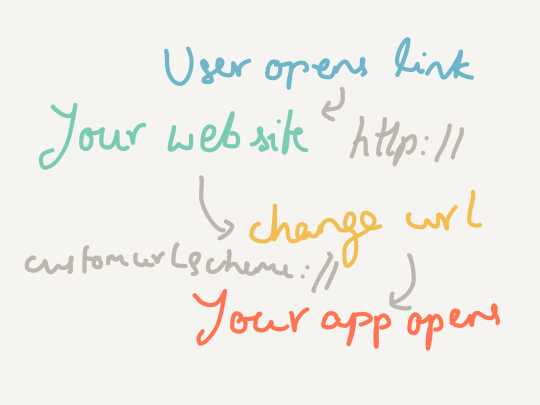 User opens link
Your website http://
change url
customurlscheme://
Your app opens